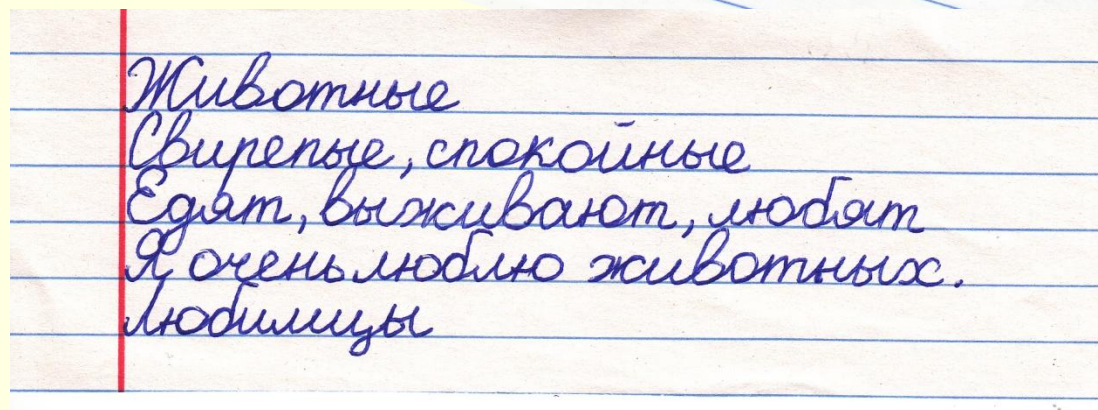 Животные
Свирепые, спокойные
Едят, выживают, любят
Я очень люблю животных.
Любимицы